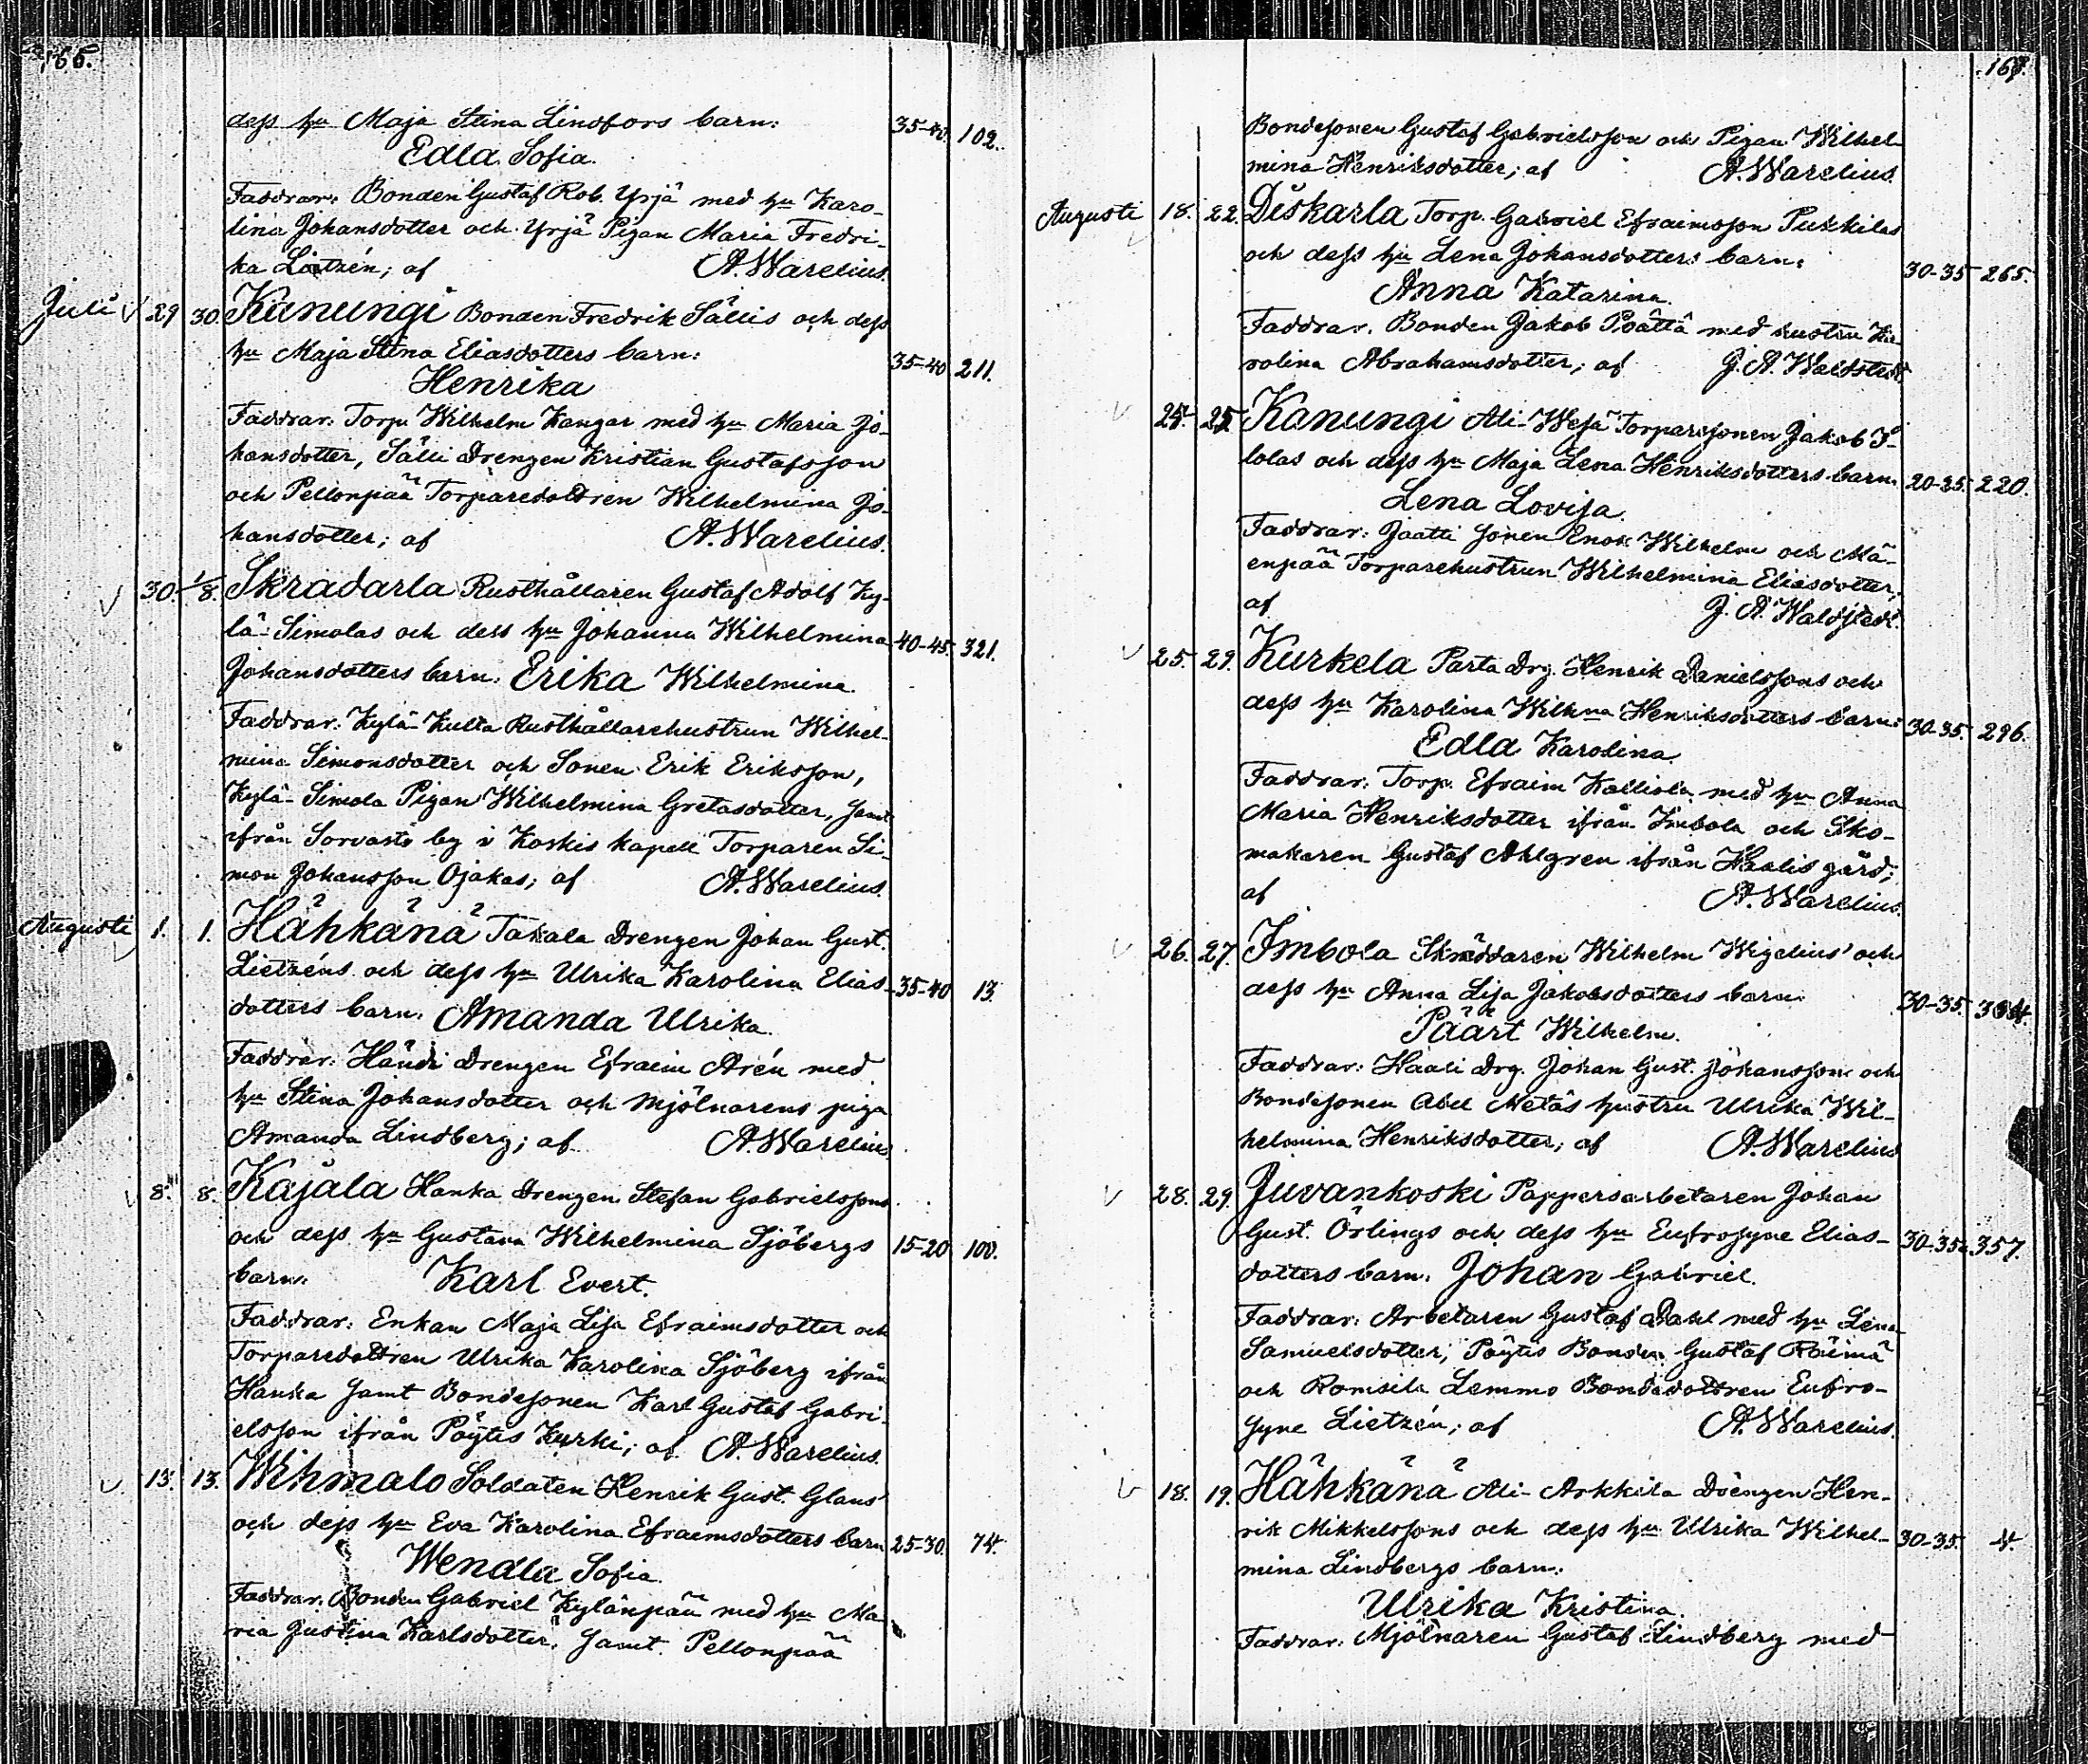 166.
dess hu Maja Stina Lindfors barn: 35-40. 102.
Edla Sofia.
Faddrar: Bonden Gustaf Rob. Yrjä med hu Karo-
lina Johansdotter och Yrjä Pigan Maria Fredri-
ka Lietzén; af A. Warelius.
Juli 29 30. Kanungi Bonden Fredrik Sällis och dess
hu Maja Stina Eliasdotters barn: 35-40 211.
Henrika
Faddrar: Torp. Wilhelm Kangar med hu Maria Jo-
hansdotter, Sälli Drengen Kristian Gustafsson
och Pellonpää Torparedottren Wilhelmina Jo-
hansdotter; af A. Warelius.
30. 1/8. Skradarla Rusthållaren Gustaf Adolf Ky-
lä-Simolas och dess hu Johanna Wilhelmina 40-45. 321.
Johansdotters barn: Erika Wilhelmina.
Faddrar: Kylä-Kulta Rusthållarehustrun Wilhel-
mina Simonsdotter och Sonen Erik Eriksson,
Kylä-Simola Pigan Wilhelmina Gretasdotter, samt
ifrån Sorvasto by i Koskis kapell Torparen Si-
mon Johansson Ojakas; af A. Warelius.
Augusti 1. 1. Hähkänä Takala Drengen Johan Gust.
Lietzéns och dess hu Ulrika Karolina Elias- 35-40 13.
dotters barn: Amanda Ulrika.
Faddrar: Händi Drengen Efraim Arén med
hu Stina Johansdotter och Mjölnarens piga
Amanda Lindberg; af A. Warelius
8. 8. Kajala Hanka Drengen Stefan Gabrielssons
och dess hu Gustava Wilhelmina Sjöbergs 15-20 100.
barn: Karl Evert.
Faddrar: Enkan Maja Lisa Efraimsdotter och
Torparedottren Ulrika Karolina Sjöberg ifrån
Hanka samt Bondesonen Karl Gustaf Gabri-
elsson ifrån Pöytis Kurki; af A. Warelius.
13. 13. Wihmalo Soldaten Henrik Gust. Glans
och dess hu Eva Karolina Efraimsdotters barn 25-30. 74.
Wendla Sofia.
Faddrar: Bonden Gabriel Kylänpää med hu Ma-
ria Justina Karlsdotter, samt Pellonpää
167.
Bondesonen Gustaf Gabrielsson och Pigan Wilhel-
mina Henriksdotter; af A. Warelius.
Augusti 18. 22. Diskarla Torp. Gabriel Efraimsson Pukkilas
och dess hu Lena Johansdotters barn: 30-35 265.
Anna Katarina.
Faddrar: Bonden Jakob Poättä med hustru Ka-
rolina Abrahamsdotter; af J. A. Waldstedt
25. Kanungi Ali-Wesa Torparesonen Jakob I-
lolas och dess hu Maja Lena Henriksdotters barn: 20-35. 220.
Lena Lovisa.
Faddrar: Jaatti Sonen Enok Wilhelm och Mä-
enpää Torparehustrun Wilhelmina Eliasdotter;
af J. A. Waldstedt.
25. 29. Kurkela Parta Drg. Henrik Danielssons och
dess hu Karolina Wilhna Henriksdotters barn: 30-35. 296.
Edla Karolina.
Faddrar: Torp. Efraim Kalliola med hu Anna
Maria Henriksdotter ifrån Imbola och Sko-
makaren Gustaf Ahlgren ifrån Haalis gård;
af A. Warelius.
26. 27. Imbola Skräddaren Wilhelm Wigelius' och
dess hu Anna Lisa Jakobsdotters barn: 30-35.
Päärt Wilhelm.
Faddrar: Haali Drg. Johan Gust. Johansson och
Bondesonen Abel Metäs hustru Ulrika Wil-
helmina Henriksdotter; af A. Warelius
28. 29. Juvankoski Pappersarbetaren Johan
Gust. Örlings och dess hu Eufrosyne Elias- 30-35. 357.
dotters barn: Johan Gabriel.
Faddrar: Arbetaren Gustaf Dahl med hu Lena
Samuelsdotter, Pöytis Bonden Gustaf Räimä
och Romsila Lemmo Bondedottren Eufro-
syne Lietzén; af A. Warelius.
18. 19. Hähkänä Ali-Arkkila Drengen Hen-
rik Mikkelssons och dess hu Ulrika Wilhel- 30-35. 4.
mina Lindbergs barn:
Ulrika Kristina.
Faddrar: Mjölnaren Gustaf Lindberg med